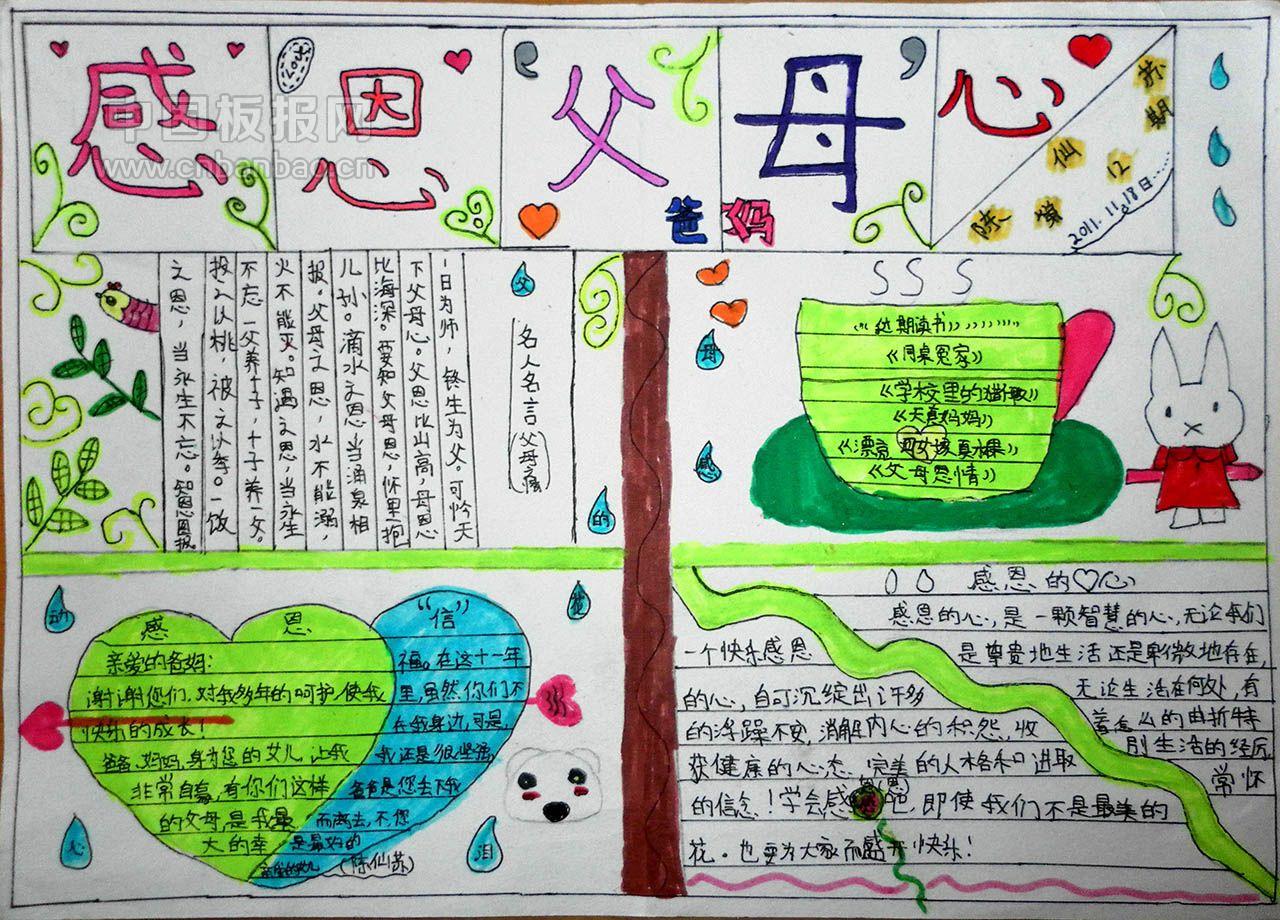 感恩父母心
中国板报网
www.cnbanbao.cn
爸妈
苏
期
仙
12
陈
2011.11.18日
名人名言(父母
一日为师，终生为父。可怜天
下父母心。父恩比山高，母恩
比海深。要知父母恩，怀里抱
儿孙。滴水之恩当涌泉相
报。父母之恩，水不能溺，
火不能灭。知遇之恩，当永生
不忘 一父养十子，十子养一父。
投之以桃，被之以李。一饭
之恩，当永生不忘。知恩图报
父
母
感
的
动
心
泪
SSS
期读书
《同桌冤家》
《学校里的
《天真妈妈》
真水果》
《父母恩情》
感恩“信”
亲爱的爸妈：
谢谢您们，对我多年的呵护，使我
快乐的成长！
爸爸、妈妈，身为您的女儿，让我
非常自豪，有你们这样
的父母，是我最
大的幸
福。在这十一年
里，虽然你们不
在我身边，可是，
我还是很坚强，
是您
而离去，不，您
是最好的
(陈仙苏)
感恩的心
感恩的心，是一颗智慧的心，无论我们
是尊贵地生活还是卑微地存在，
无论生活在何处，有
着怎么的曲折特
别生活的经历，
常怀
一个快乐感恩
的心，自可沉绽出许多
的浮躁不安，消解内心的积怨，收
获健康的心态、完美的人格和进取
的信念！学会感恩吧，即使我们不是最美的
花。也要为大家而盛开快乐！